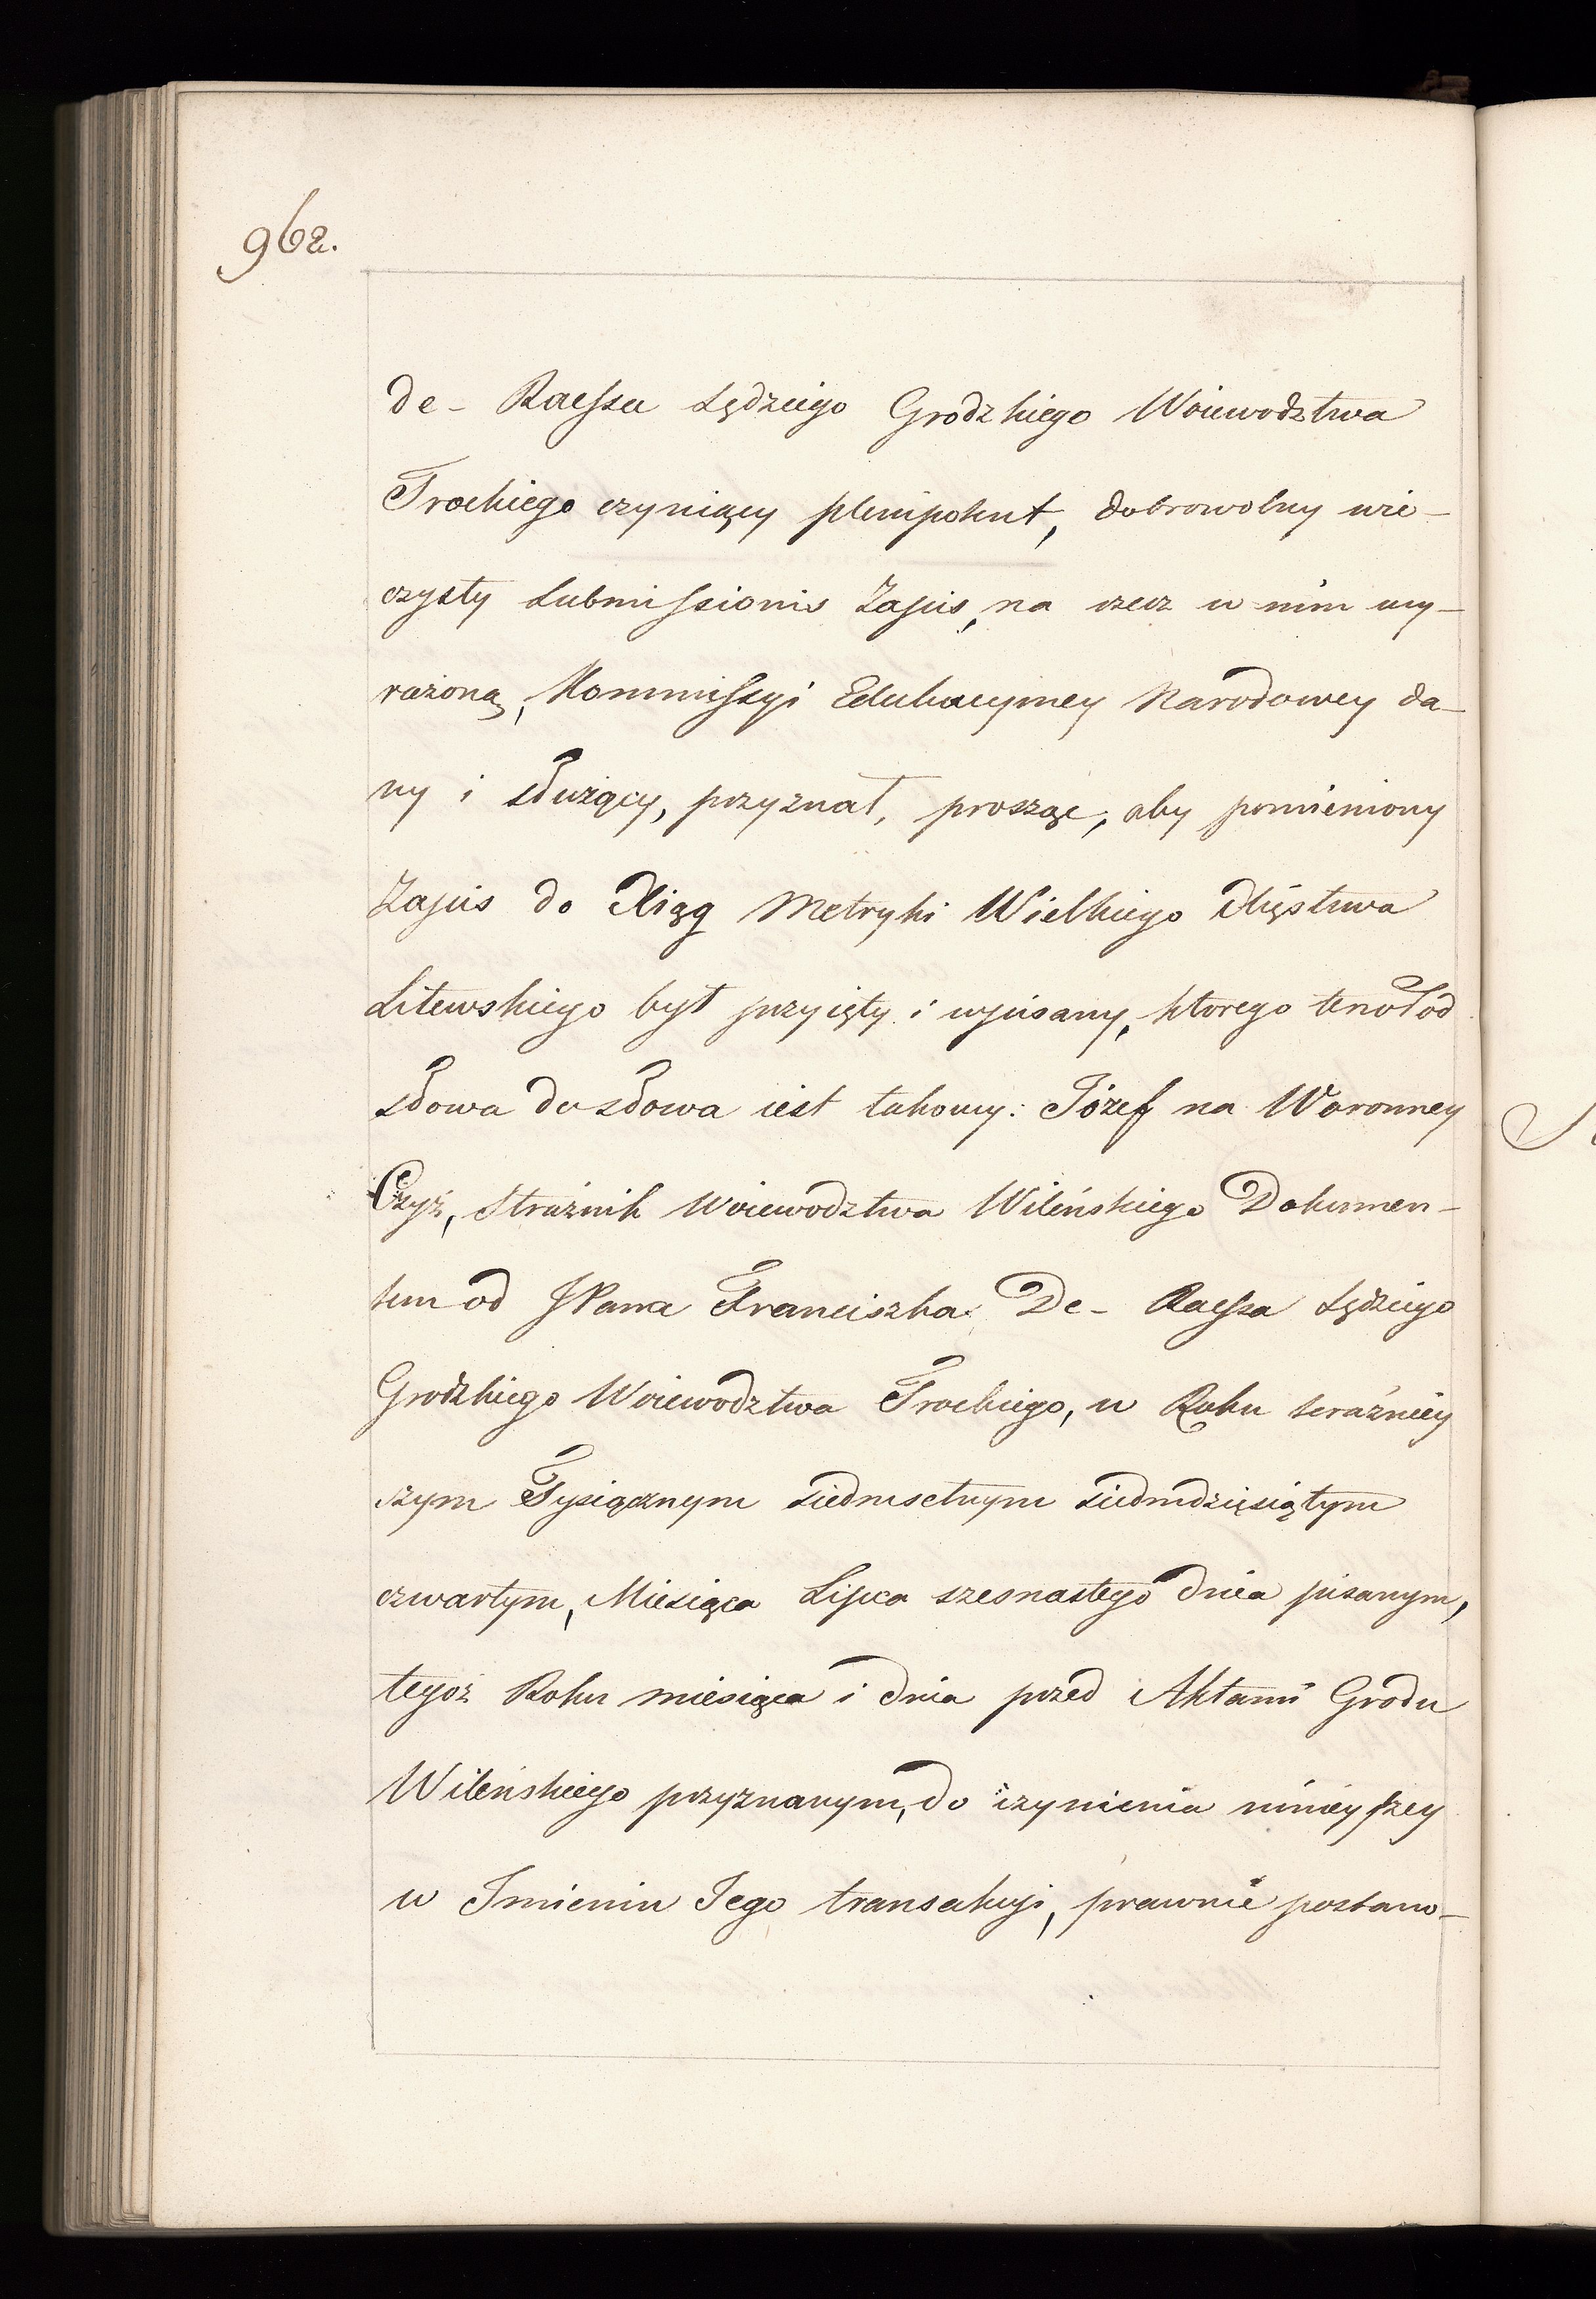 962.
de- Raessa Sędziego Grodzkiego Woiewodztwa
Trockiego czyniący plenipotent, dobrowolny wie-
czysty Submissionis Zapis, na rzecz w nim wy-
rażoną, Kommissyi Edukacyiney Narodowey da-
ny i służący, przyznał, prosząc, aby pomieniony
Zapis do Xiąg Metryki Wielkiego Xięstwa
Litewskiego był przyięty i wpisany, ktorego tenor od
słowa do słowa iest takowy: Józef na Woronney
Czyż, Strażnik Woiewodztwa Wileńskiego Dokumen-
tem od JPana Franciszka De- Raessa Sędziego
Grodzkiego Woiewodztwa Trockiego, w Roku teraźniey
szym Tysiącznym siedmsetnym siedmdziesiątym
czwartym, Miesiąca Lipca szesnastego dnia pisanym,
tegoż Roku miesiąca i dnia przed Aktami Grodu
Wileńskiego przyznanym, do czynienia ninieyszey
w Imieniu Jego transakcyi, prawnie postano-